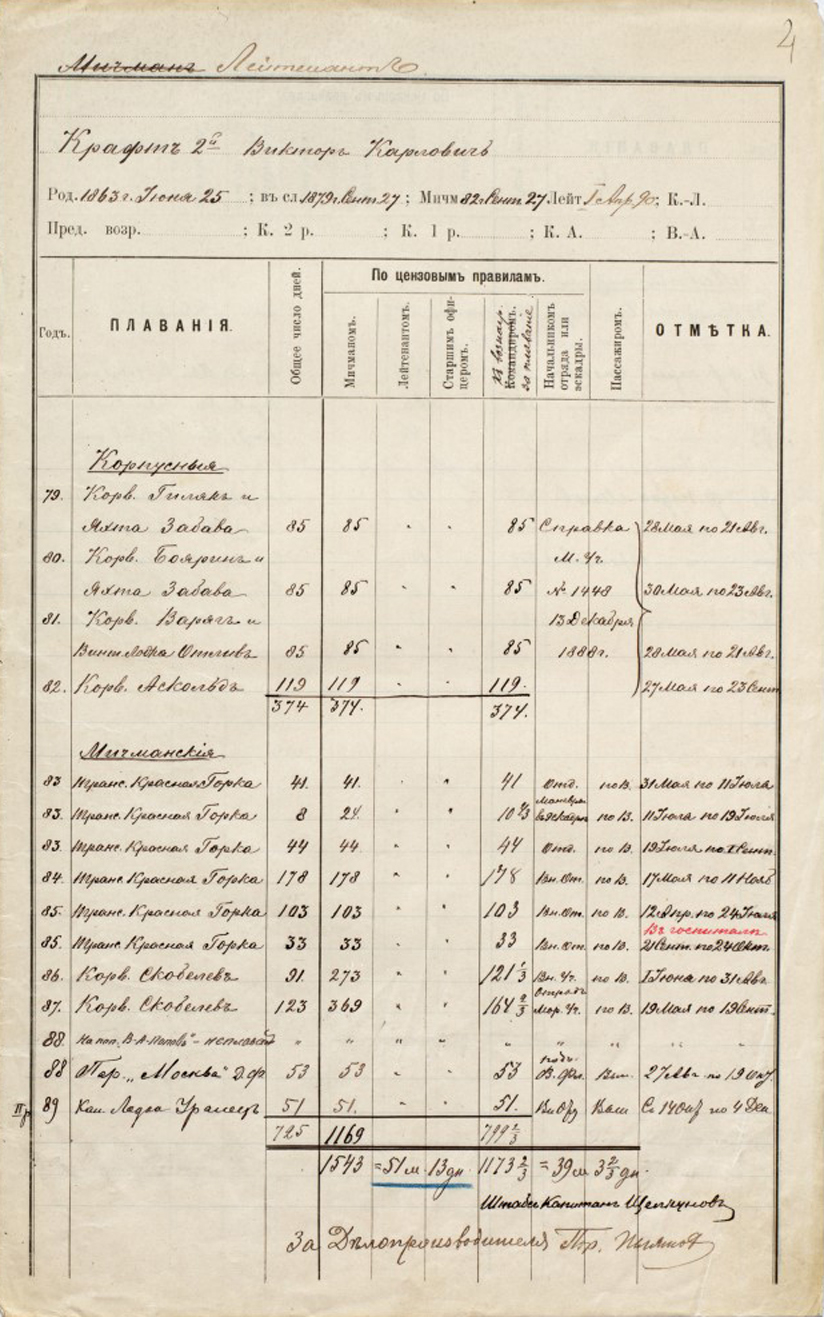 4
Мичманъ Лейтенантъ
Крафтъ 2й Викторъ Карловичъ
Род. 1863 г. Іюня 25 ; въ сл. 1879 г. Сент 27 ; Мичм 82 г. Сент 27 Лейт 1 Апр 90 ; К.-Л.
Пред. возр. ; К. 2 р. ; К. 1 р. ; К. А. ; В.-А.
Годъ. ПЛАВАНІЯ. Общее число дней. По цензовымъ правиламъ. Мичманомъ. Лейтенантомъ. Старшимъ офи-церомъ. Командиромъ. за плаваніе Начальникомъ отряда или эскадры. Пассажиромъ. ОТМѢТКА.
Корпусныя
79. Корв. Гилякъ и
Яхта Забава 85 85 " " 85 Справка 28 Мая по 21 Авг.
80. Корв. Бояринъ и М. Уч.
Яхта Забава 85 85 " " 85 № 1448 30 Мая по 23 Авг.
81. Корв. Варягъ и 13 Декабря
Винт. Лодка Отливъ 85 85 " " 85 1888 г. 28 Мая по 21 Авг.
82. Корв. Аскольдъ 119 119 " " 119. 27 Мая по 23 Сент
374 374. 374.
Мичманскія
83 Транс. Красная Горка 41. 41. " " 41 Отд. по В. 31 Мая по 11 Іюля
83. Транс. Красная Горка 8 24 " " 10 2/3 по В. 11 Іюля по 19 Іюля
83. Транс. Красная Горка 44 44 " " 44 Отд. по В. 19 Іюля по 1 Сент.
84. Транс. Красная Горка 178 178 " " 178 Вн. От. по В. 17 Мая по 11 Нояб
85. Транс. Красная Горка 103 103 " " 103 Вн. От. по В. 12 Апр. по 24 Іюля
Въ госпиталѣ
85. Транс. Красная Горка 33 33 " " 33 Вн. От. по В. 21 Сент. по 24 Окт
86. Корв. Скобелевъ 91. 273 " " 121 1/3 Вн. Уч. по В. 1 Іюня по 31 Авг
Отрядъ
87. Корв. Скобелевъ 123 369 " " 164 2/3 Мор. Уч. по В. 19 Мая по 19 Сент.
88. На поп. "В-А-Поповъ" - неплавалъ " " " " " " " " "
88 Пар. "Москва" Д. Фл 53 53 " " 53 27 Авг по 19 Окт
89 Кан. Лодка Уралецъ 51 51. " " 51. Съ 14 Окт по 4 Дек
725 1169 799 2/3
1543 = 51 м. 13 дн. 1173 2/3 = 39 м 3 2/3 дн.
Штабсъ Капитанъ
За Дѣлопроизводителя